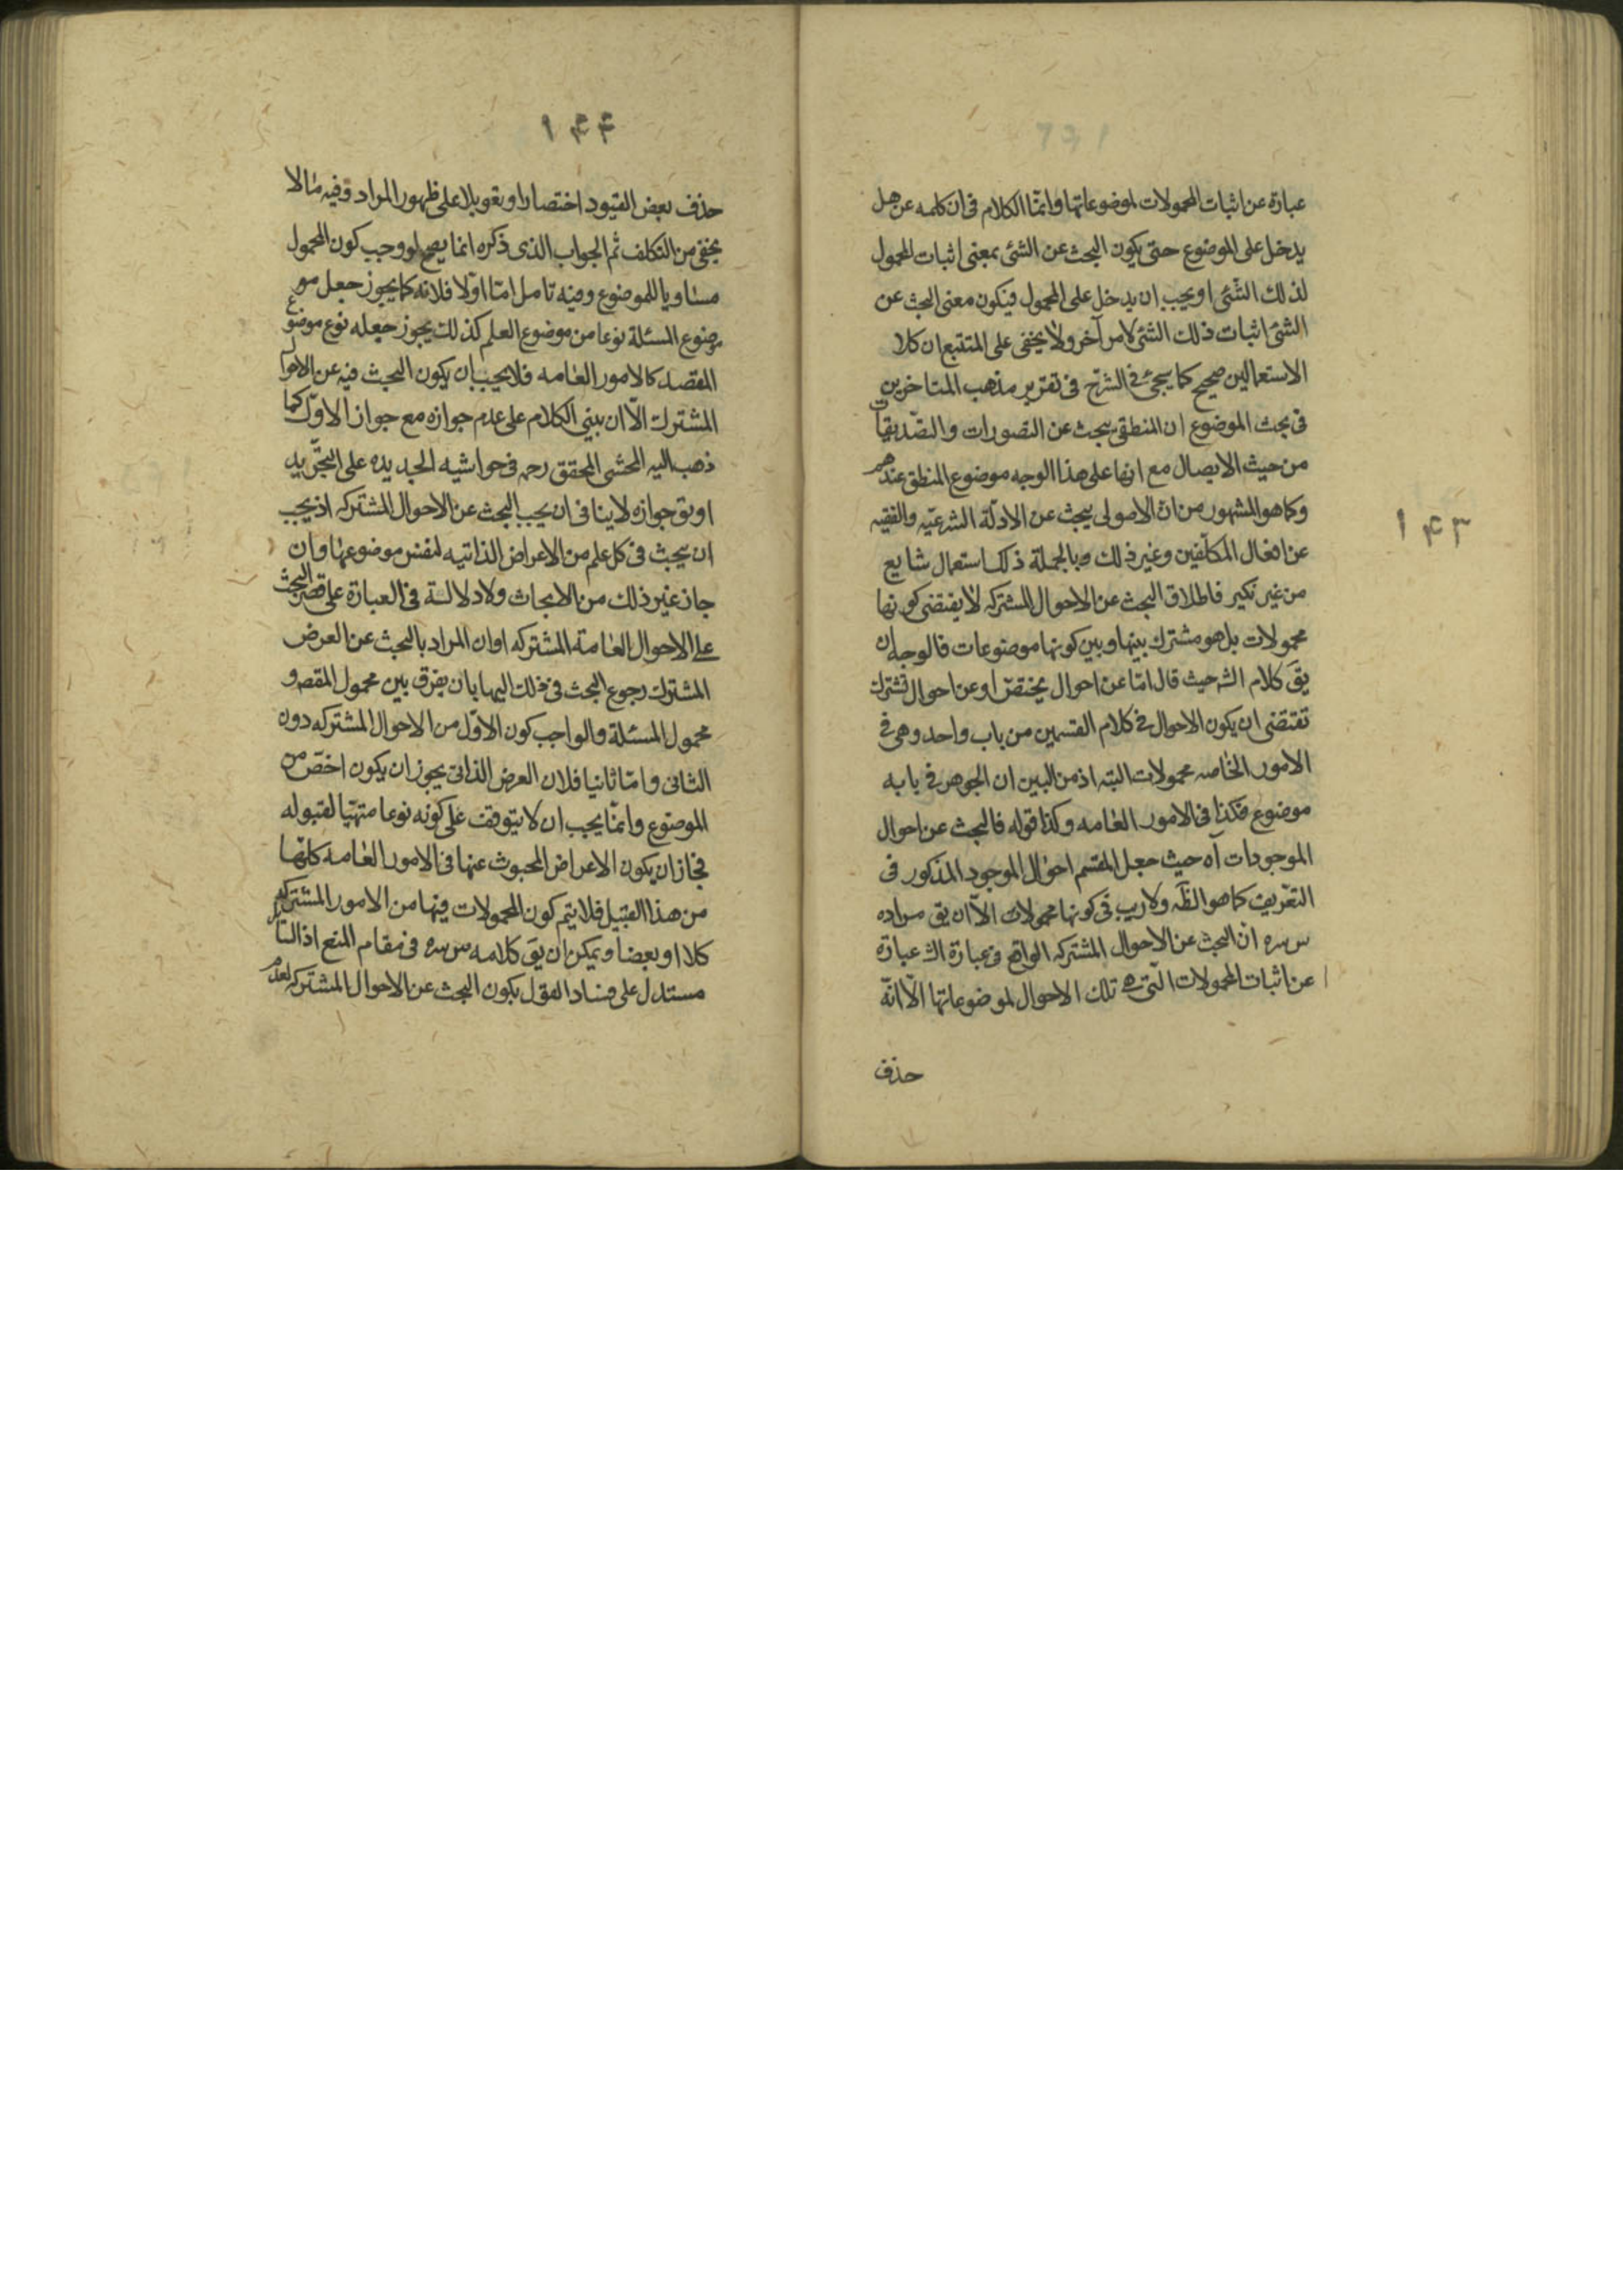 ۱۴۳
عبارة عن اثبات المحمولات لموضوعاتها وانمّا الكلام فى ان كلمه عن هل
يدخل على الموضوع حتى يكون البحث عن الشئ بمعنى اثبات المحمول
لذلك الشّئى او يجب ان يدخل على المحمول فيكون معنى البحث عن
الشئ اثبات ذلك الشئ لامر آخر ولا يخفى على المتتبع ان كلا
الاستعمالين صحيح كما سيجئ فى الشرّح فى تقرير مذهب المتاخرين
فى بحث الموضوع ان المنطقى يبحث عن التصورات والتصّديقات
من حيث الايصال مع انها على هذا الوجه موضوع المنطق عندهم
وكما هو المشهور من انّ الاصولى يبحث عن الادلّة الشرعيّه والفقيه
عن افعال المكلّفين وغير ذلك وبالجملة ذلك استعمال شايع
من غير نكير فاطلاق البحث عن الاحوال المشتركه لا يقتضى كونها
محمولات بل هو مشترك بينها وبين كونها موضوعات فالوجه ان
يقَ كلام الشه حيث قال امّا عن احوال يختصّ او عن احوال تشترك
تقتضى ان يكون الاحوال فى كلام القسمين من باب واحد وهى فى
الامور الخاصه محمولات البته اذ من البين ان الجوهر فى بابه
موضوع فكذا فى الامور العامه وكذا قوله فالبحث عن احوال
الموجودات آه حيث جعل المقسم احوال الموجود المذكور فى
التعّريف كما هو الظَه ولا ريب فى كونها محمولات الاّ ان يق مراده
س سره انّ البحث عن الاحوال المشتركه الواقع فى عبارة الشه عبارة
عن اثبات المحمولات الّتى هى تلك الاحوال لموضوعاتها الاّ انّه
حذف
۱۴۴
حذف بعض القيود اختصارا وتعويلا على ظهور المراد وفيه مالا
يخفى من التكلف ثم الجواب الذى ذكره انما يصح لو وجب كون المحمول
مساويا للموضوع وفيه تامل امّا اوّلا فلانه كما يجوز جعل مو
موضوع المسئلة نوعا من موضوع العلم كذلك يجوز جعله نوع موضوع
المقصد كالامور العامه فلا يجب ان يكون البحث فيه عن الاحوال
المشترك الاّ ان يبنى الكلام على عدم جوازه مع جواز الاوّل كما
ذهب اليه المحشى المحقق رحمه فى حواشيه الجديده على التجّريد
او يق جوازه لا ينافى ان يجب البحث عن الاحوال المشتركه اذ يجب
ان يبحث فى كل علم من الاعراض الذاتيه لنفس موضوعها وان
جاز غير ذلك من الابحاث ولا دلالة فى العبارة على قصر البحث
على الاحوال العامة المشتركه او ان المراد بالبحث عن العرض
المشترك رجوع البحث فى ذلك اليها بان يفرق بين محمول المقصد و
محمول المسئلة والواجب كون الاوّل من الاحوال المشتركه دون
الثانى وامّا ثانيا فلان العرض الذاتى يجوز ان يكون اخصّ من
الموضوع وانمّا يجب ان لا يتوقف على كونه نوعا متهيّا لقبوله
فجاز ان يكون الاعراض المحبوث عنها فى الامور العامه كلهّا
من هذا القبيل فلا يتم كون المحمولات فيها من الامور المشتركه
كلا او بعضا ويمكن ان يقَ كلامه س سره فى مقام المنع اذ السائل
مستدل على فساد القول بكون البحث عن الاحوال المشتركه لعدم